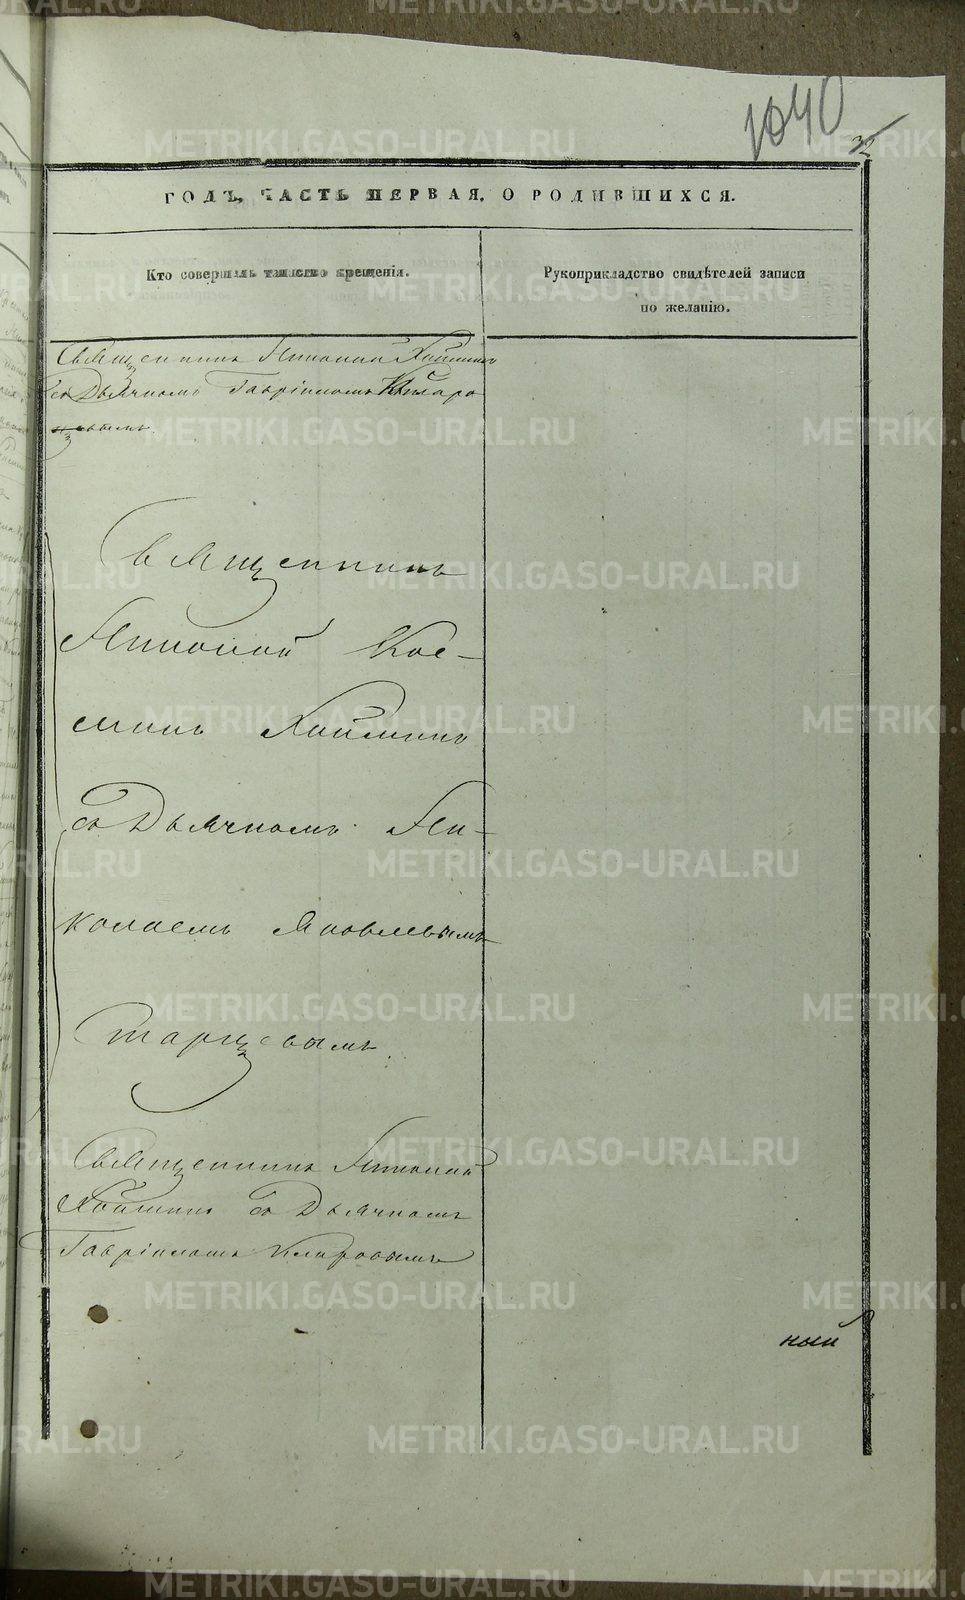 1040
ГОДЪ, ЧАСТЬ ПЕРВАЯ, О РОДИВШИХСЯ.
Кто совершалъ таинство крещенія.
Рукоприкладство свидѣтелей записи
по желанію.
Священникъ Антоній Хаймин
съ Дьячкомъ Гавріиломъ Киларо
Священникъ
Антоній Кос-
минъ Хайминъ
съ Дьячкомъ Ни-
колаемъ Яковлевымъ
Старцевымъ
Священникъ Антоній
Хайминъ съ Дьячкомъ
Гавріиломъ Киларовымъ
ный
METRIKI.GASO-URAL.RU